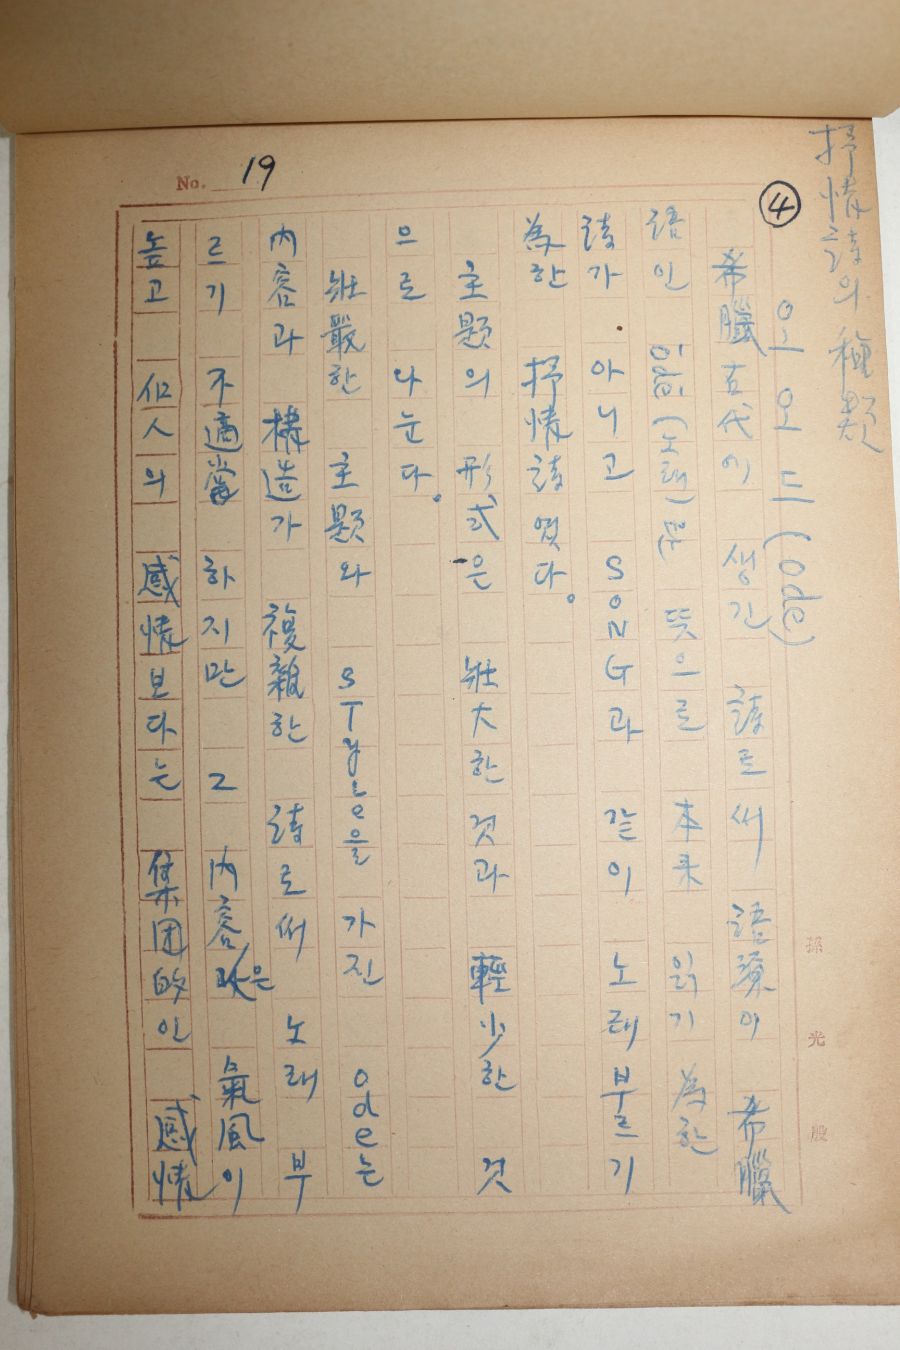 No. 19
抒情詩의 種類
④
오오드 (ode)
希臘古代에 생긴 詩로써 語源이 希臘
語인 (노래)란 뜻으로 本来 읽기 為한
詩가 아니고 SONG과 같이 노래부르기
為한 抒情詩였다。
主題의 形式은 壯大한 것과 輕少한 것
으로 나눈다。
壯嚴한 主題와 STyle을 가진 ode는
內容과 構造가 複雜한 詩로써 노래 부
르기 不適當하지만 그 內容은 氣風이
높고 個人의 感情보다는 集团的인 感情
孫 光 殷